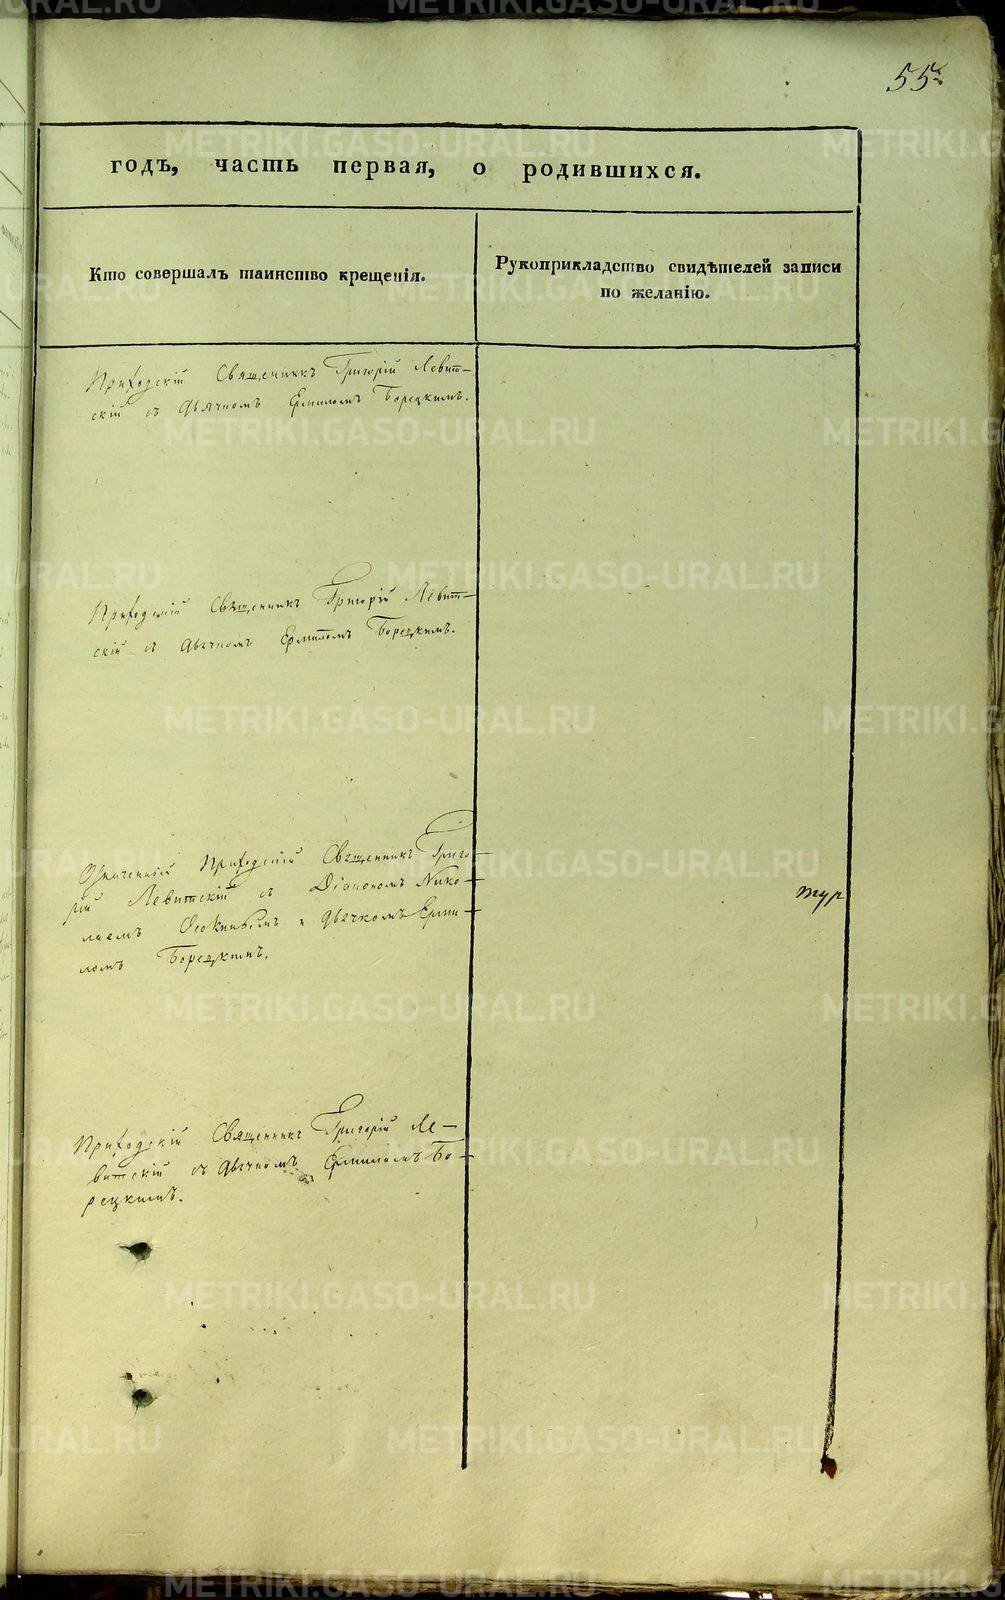 55.
годъ, часть первая, о родившихся.
Кто совершалъ таинство крещенія.
Рукоприкладство свидѣтелей записи
по желанію.
Приходскій Священникъ Григорій Левит-
скій съ дьячкомъ Ермиломъ Борецкимъ.
Приходскій Священникъ Григорій Левит-
скій съ дьячкомъ Ермиломъ Борецкимъ.
Означенный Приходскій Священникъ Григо-
рій Левитскій съ Діакономъ Нико-
лаемъ и дьячкомъ Ерми-
ломъ Борецкимъ.
тур
Приходскій Священникъ Григорій Ле-
витскій съ дьячкомъ Ермиломъ Бо-
рецкимъ.
METRIKI.GASO-URAL.RU